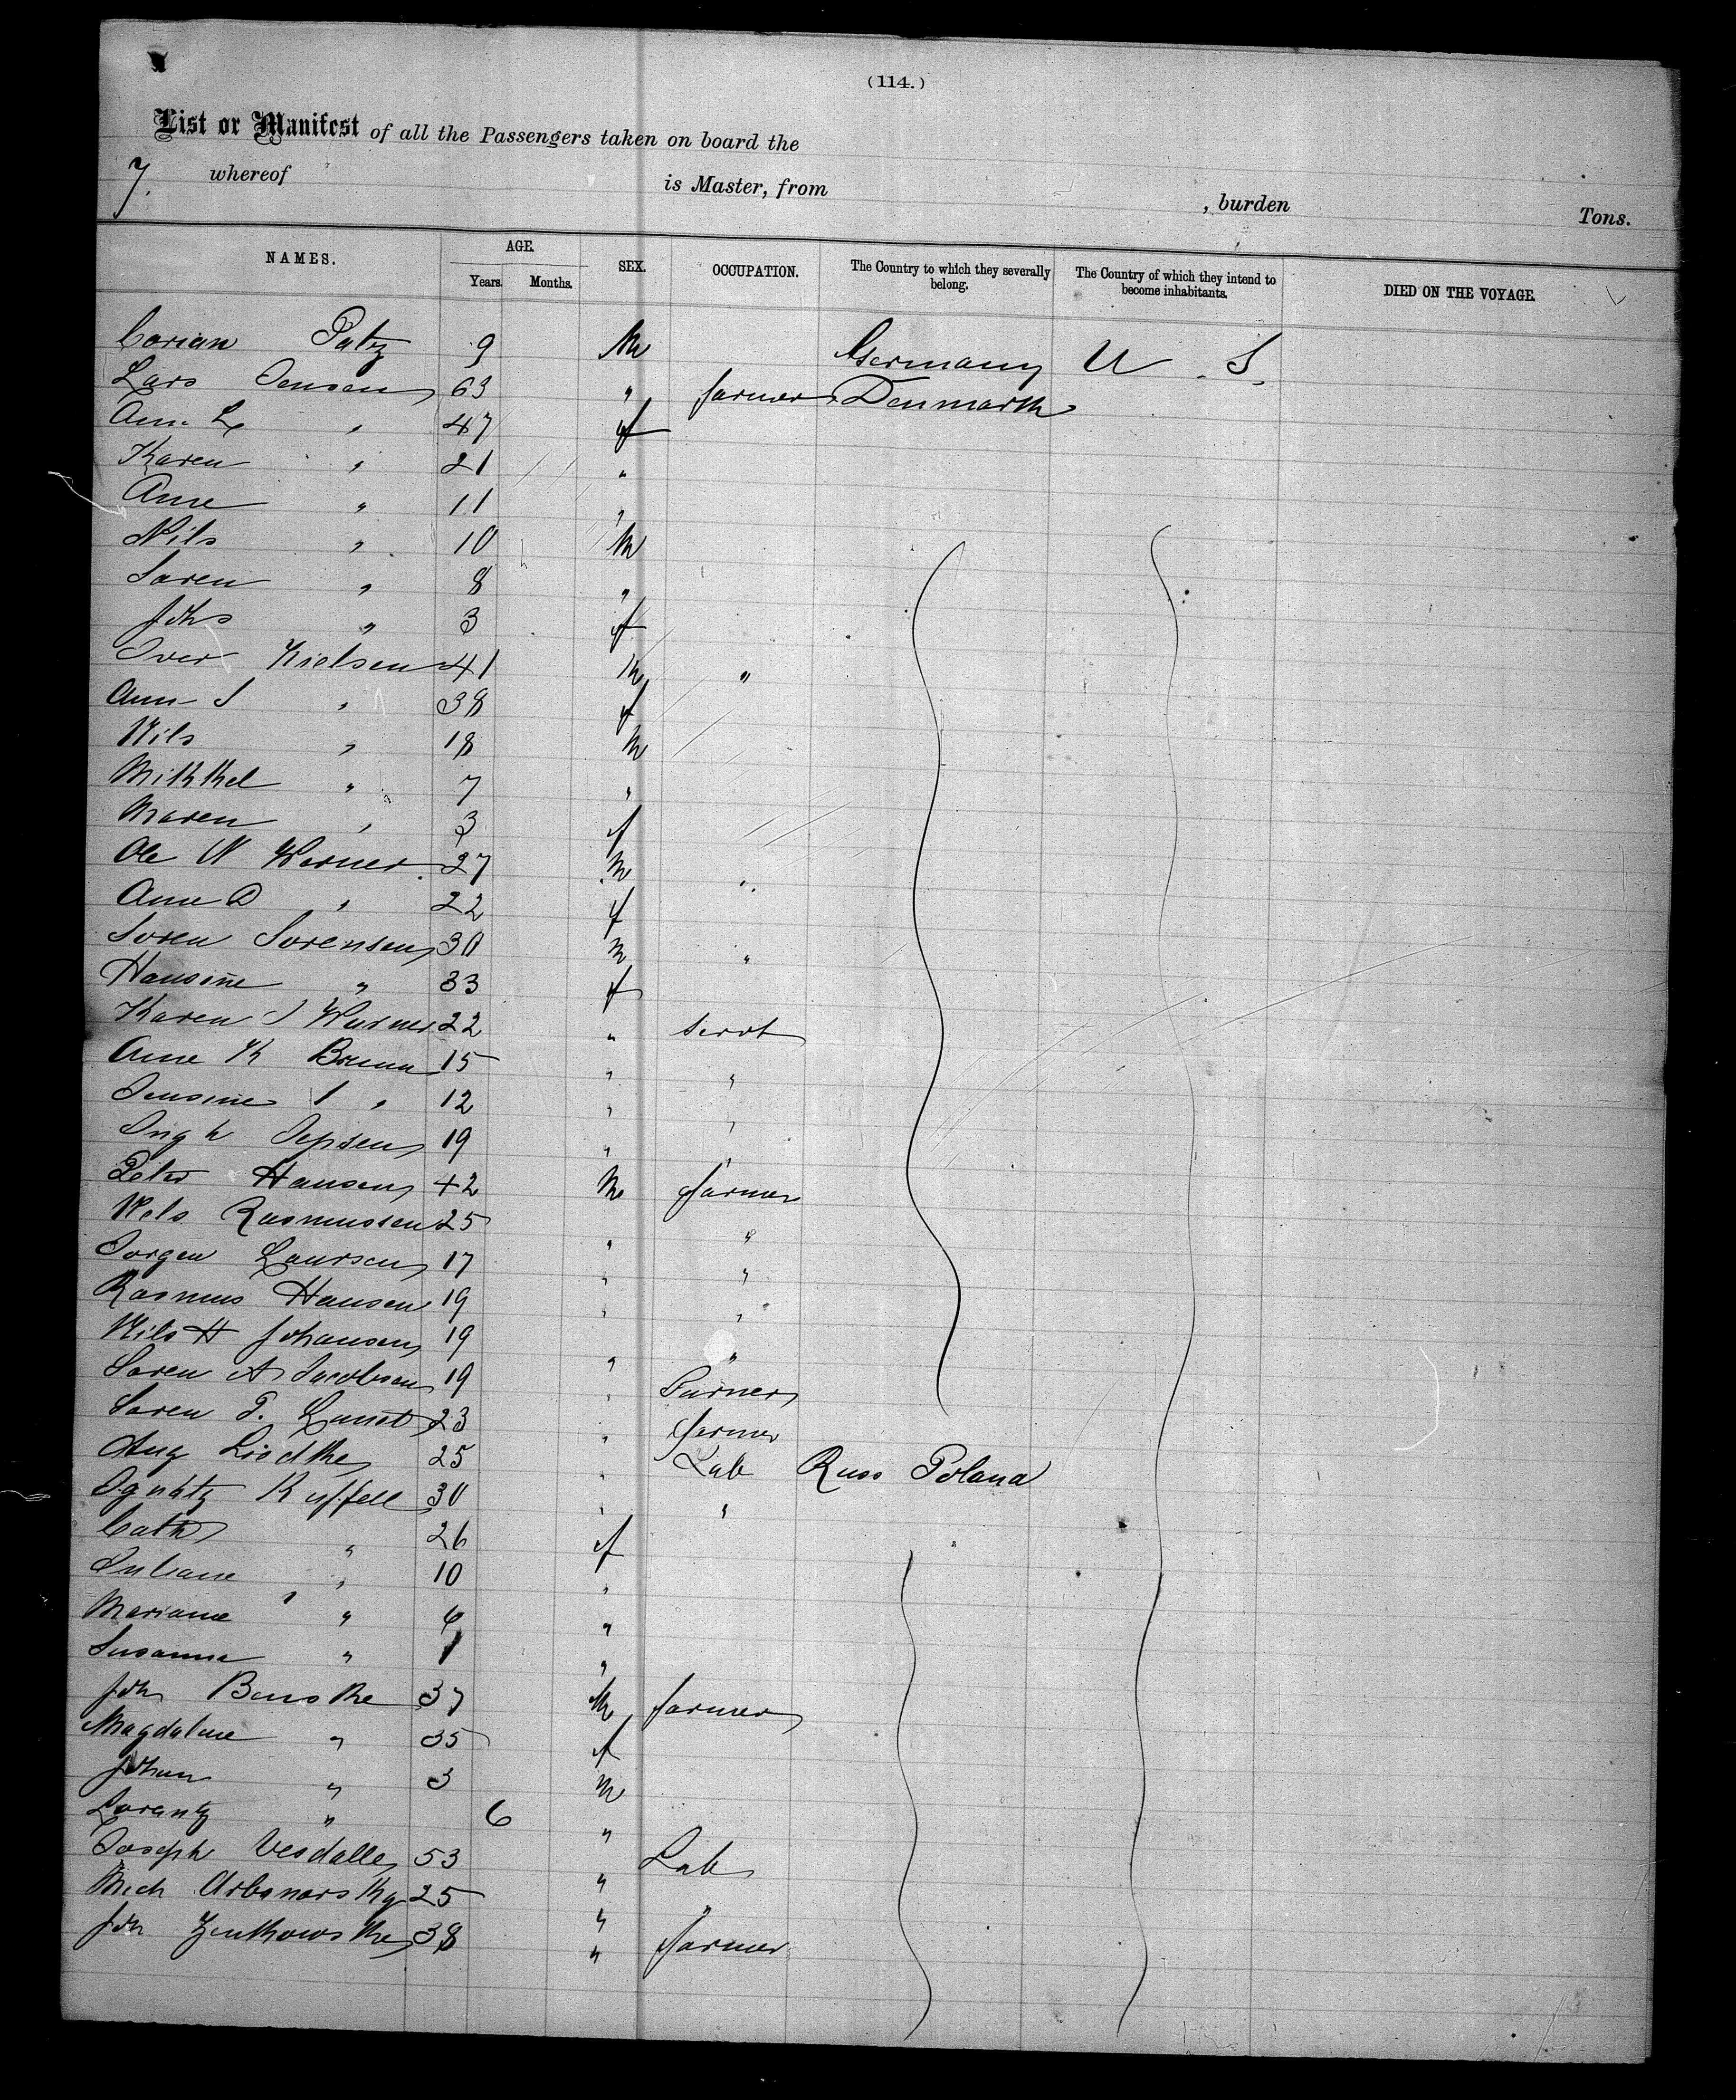 (114.)
List or Manifest of all the Passengers taken on board the
7. whereof is Master, from , burden Tons.
NAMES. AGE. Years. Months. SEX. OCCUPATION. The Country to which they severally belong. The Country of which they intend to become inhabitants. DIED ON THE VOYAGE.
Patz 9 M Germany U.S.
Lars Jensen 63 " farmer Denmark
Ann L " 47 f
Karen " 21 "
Ane " 11 "
Nils " 10 M
Soren " 8 "
Johs " 3 f
Iver Nielsen 41 M "
Ann S " 38 f
Nils " 18 M
Mikkel " 7 "
Maren " 3 f
Ole N Werner 27 M "
Ane D " 22 f
Soren Sorensen 30 M "
Hansine " 33 f
Karen J Warner 22 " servt
Ane K Bruun 15 " "
Jensine " 12 " "
Jepsen 19 " "
Peter Hansen 42 M farmer
Nels Rasmussen 25 " "
Jorgen Laursen 17 " "
Rasmus Hansen 19 " "
Nils H Johansen 19 " "
Soren A Jacobsen 19 " Turner
Soren P. 23 " farmer
Aug Liedtke 25 " Lab Russ Poland
Ignatz Kuffell 30 " "
Cath " 26 f
Juliane " 10 "
Mariane " 4 "
Susanna " 1 "
Joh Benske 37 M farmer
Magdalene " 35 f
Johan " 3 M
Lorantz " 6 "
Joseph Vesdalle 53 " Lab
Mich 25 " "
Joh 38 " farmer